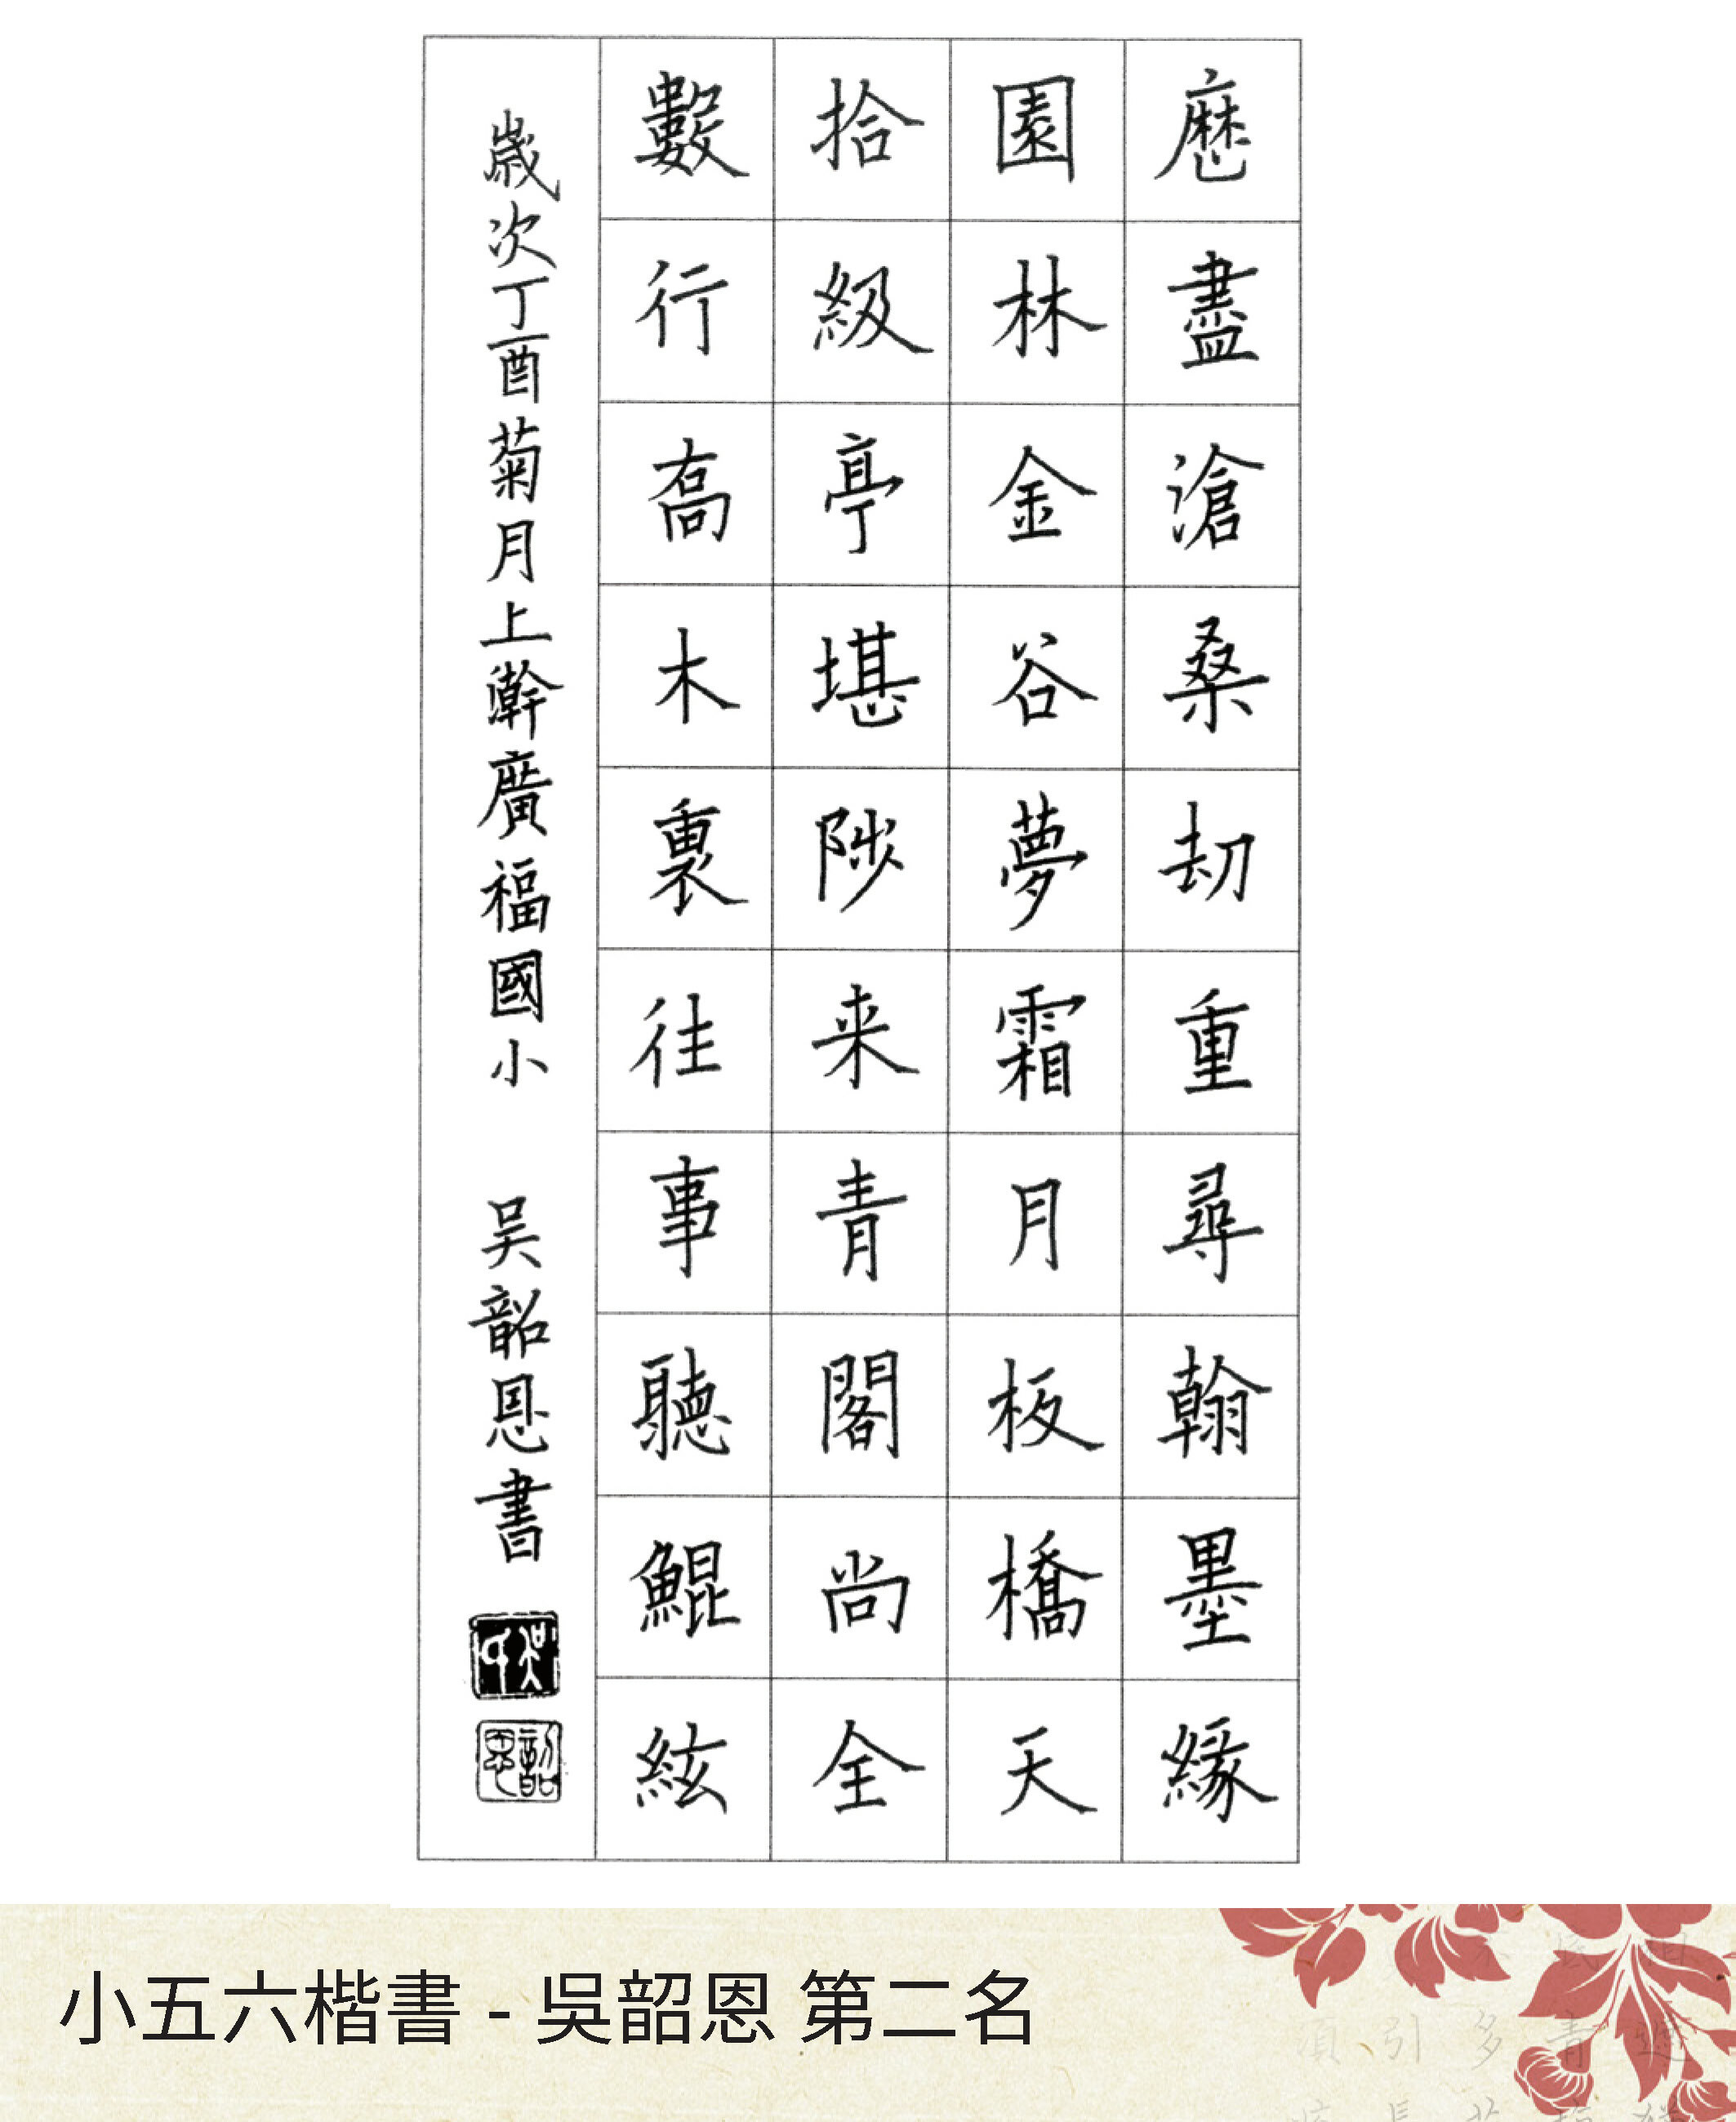 歷盡滄桑劫重尋翰墨緣
園林金谷夢霜月板橋天
拾級亭堪陟来青閣尚全
數行喬木裏往事聽鯤絃
歲次丁酉菊月上澣廣福國小 吴韶恩書
小五六楷書 - 吳韶恩 第二名